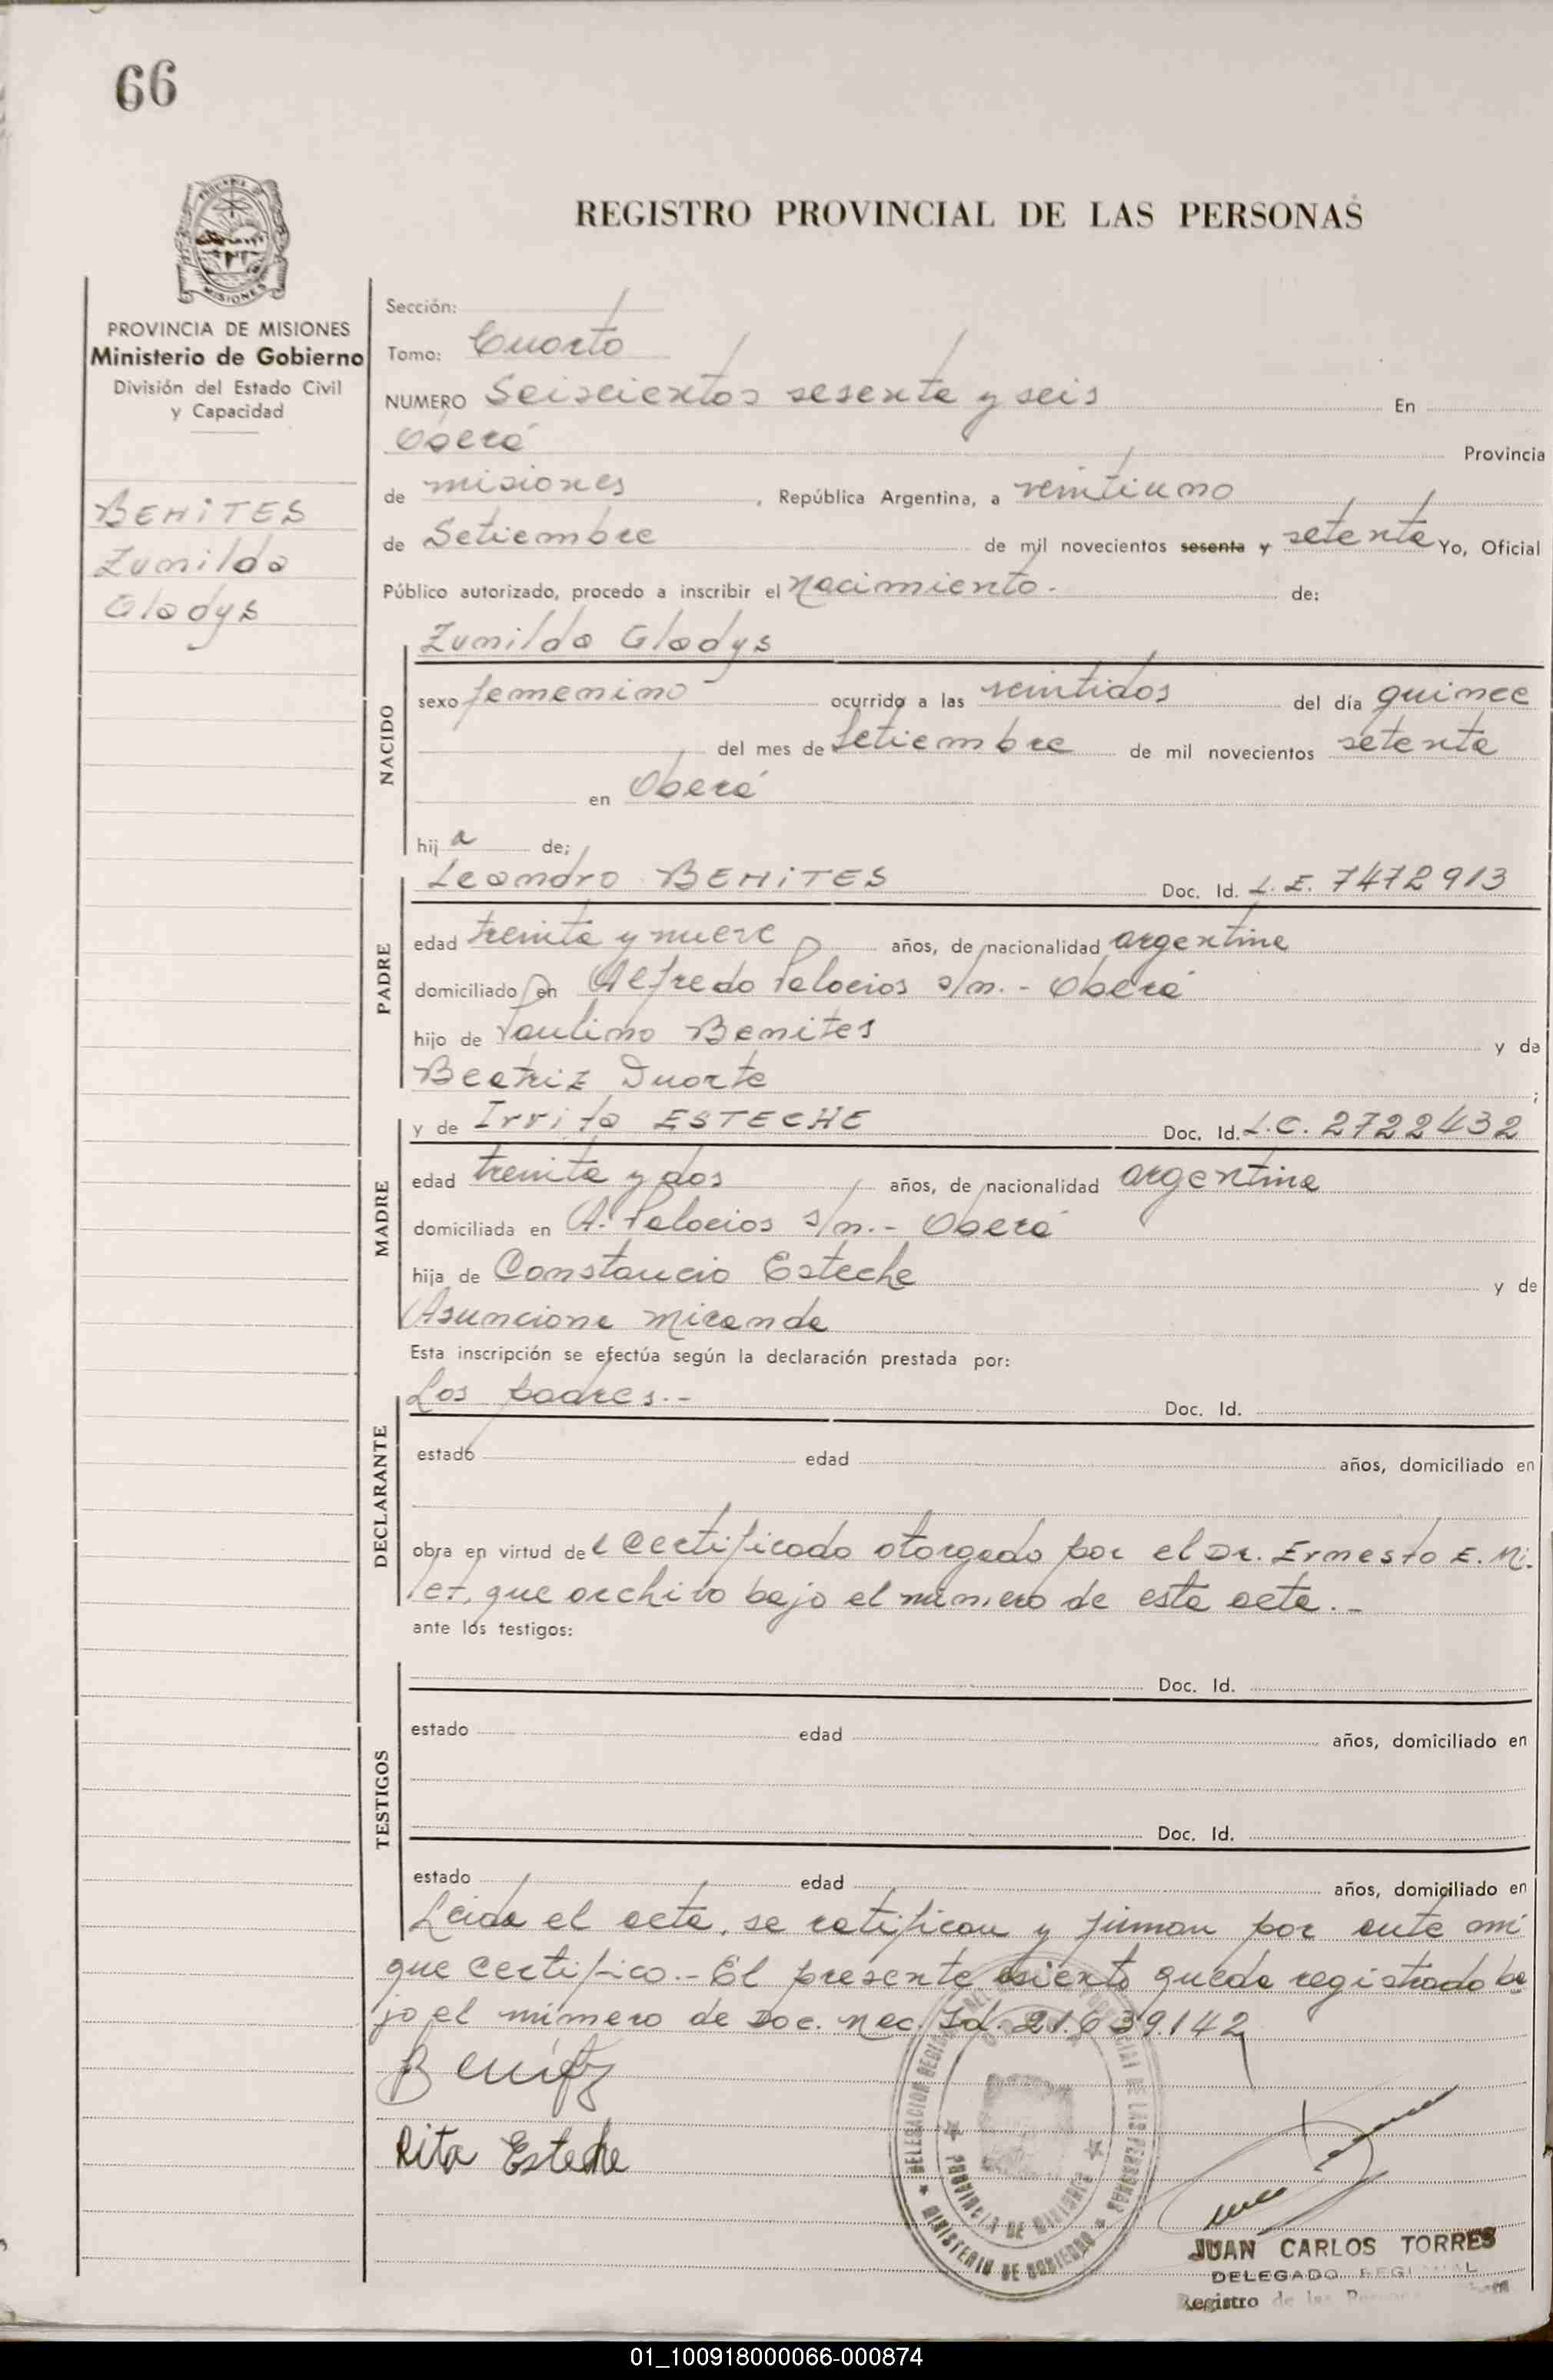 66
REGISTRO PROVINCIAL DE LAS PERSONAS
PROVINCIA DE MISIONES
Ministerio de Gobierno
División del Estado Civil
y Capacidad
BENITES
Zunilda
Gladys
Sección:
Tomo: Cuarto
NUMERO Seiscientos sesenta y seis En
Oberá Provincia
de misiones, República Argentina, a veintiuno
de Setiembre de mil novecientos sesenta y setenta Yo, Oficial
Público autorizado, procedo a inscribir el nacimiento.- de:
NACIDO
Zunilda Gladys
sexo femenino ocurrido a las veintidos del día quince
del mes de Setiembre de mil novecientos setenta
en Oberá
hija de:
PADRE
Leandro BENITES Doc. Id. L.E. 7472913
edad treinta y nueve años, de nacionalidad argentina
domiciliado en Alfredo Palacios s/n.- Oberá
hijo de Paulino Benites y de
Beatriz Duarte ;
MADRE
y de Irrita ESTECHE Doc. Id. L.C. 2722432
edad treinta y dos años, de nacionalidad argentina
domiciliada en A. Palacios s/n.- Oberá
hija de Constancio Esteche y de
Asunciona Miranda
Esta inscripción se efectúa según la declaración prestada por:
DECLARANTE
Los padres.- Doc. Id.
estado edad años, domiciliado en
obra en virtud del certificado otorgado por el Dr. Ernesto E. Mi-
let, que archivo bajo el número de esta acta.-
ante los testigos:
TESTIGOS
Doc. Id.
estado edad años, domiciliado en
Doc. Id.
estado edad años, domiciliado en
Leida el acta, se ratifican y firman por ante mi
que certifico.- El presente asiento queda registrado ba
jo el número de Doc. Nac. Id. 21.639.142
Benitez
Rita Esteche
PROVINCIA DE MISIONES
MINISTERIO DE GOBIERNO
JUAN CARLOS TORRES
DELEGADO REGIONAL
Registro de las
01_100918000066-000874